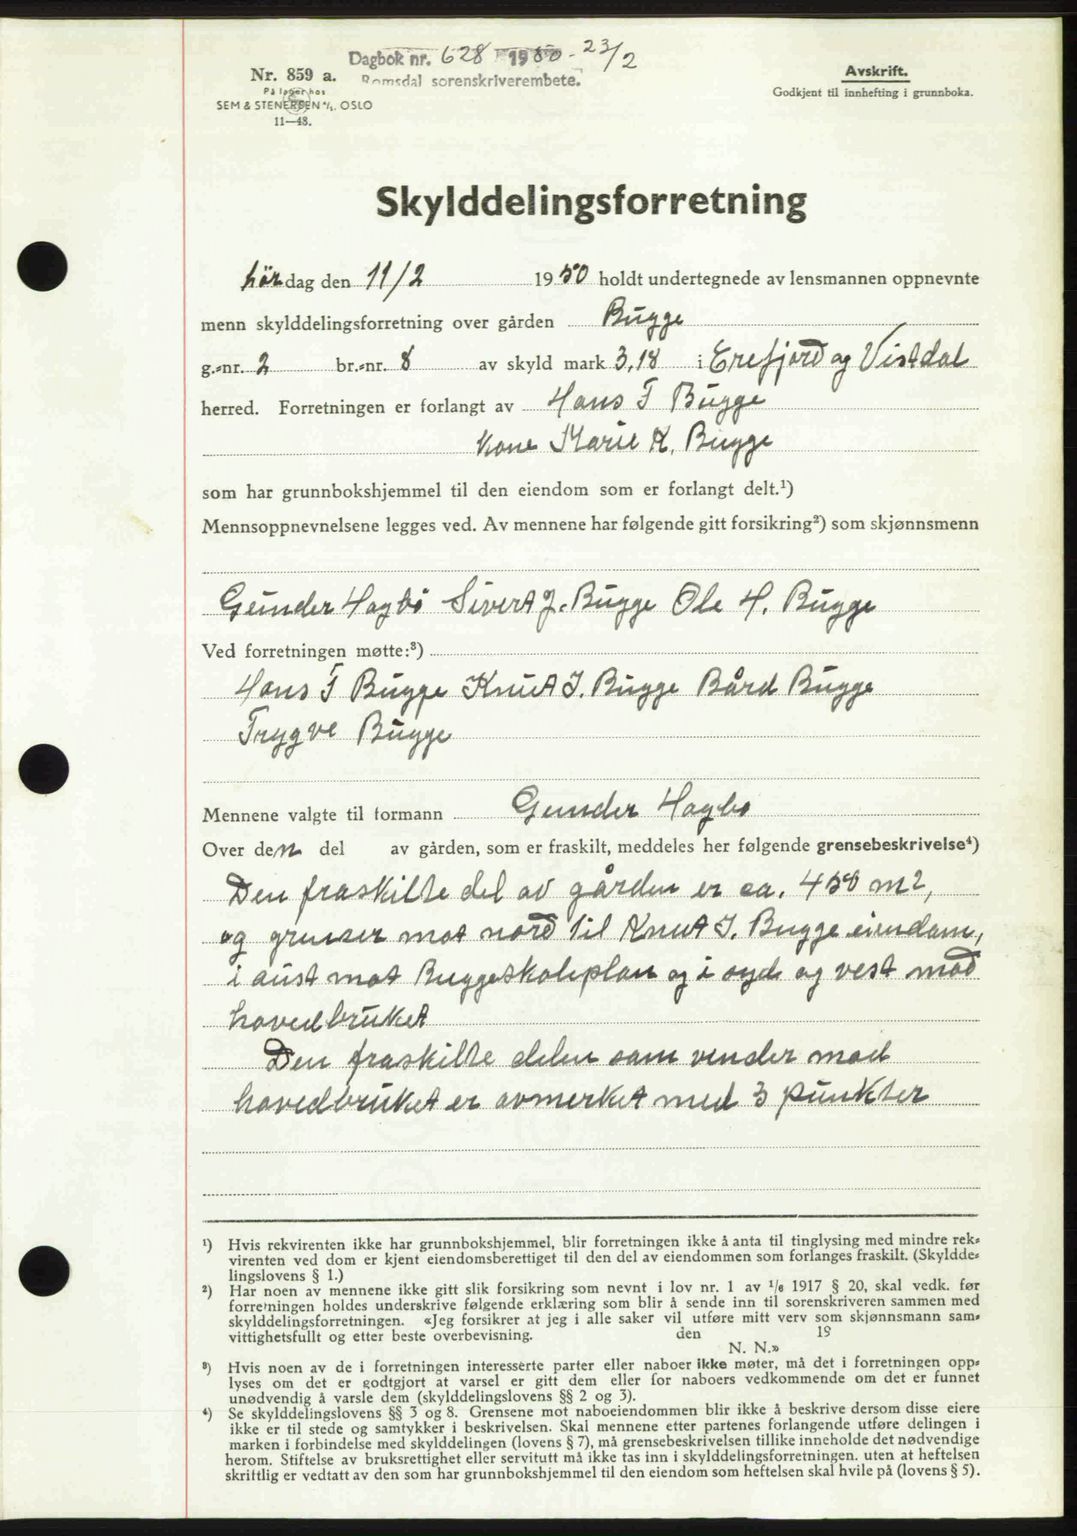 Dagbok nr. 628 1950 - 23/2
Romsdal sorenskriverembete.
Nr. 859 a.
På lager hos
SEM & STENERSEN A/S. OSLO
11—48.
Avskrift.
Godkjent til innhefting i grunnboka.
Skylddelingsforretning
lör dag den 11/2 1950 holdt undertegnede av lensmannen oppnevnte
menn skylddelingsforretning over gården Bugge
g.-nr. 2 br.-nr. 8 av skyld mark 3,18 i Eresfjord og Vistdal
herred. Forretningen er forlangt av Hans T Bugge
kone Marie K. Bugge
som har grunnbokshjemmel til den eiendom som er forlangt delt.¹)
Mennsoppnevnelsene legges ved. Av mennene har følgende gitt forsikring²) som skjønnsmenn
Gunder Hagbö Sivert J. Bugge Ole H. Bugge
Ved forretningen møtte:³)
Hans T Bugge Knut J. Bugge Bård Bugge
Trygve Bugge
Mennene valgte til formann Gunder Hagbö
Over den del av gården, som er fraskilt, meddeles her følgende grensebeskrivelse⁴)
Den fraskilte del av gården er ca. 450 m2,
og grenser mot nord til Knut J. Bugge eiendom,
i aust mot Buggeskoleplan og i syd og vest mod
hovedbruket
Den fraskilte delen som vender mod
hovedbruket er avmerket med 3 punkter
¹) Hvis rekvirenten ikke har grunnbokshjemmel, blir forretningen ikke å anta til tinglysing med mindre rek-
virenten ved dom er kjent eiendomsberettiget til den del av eiendommen som forlanges fraskilt. (Skyldde-
lingslovens § 1.)
²) Har noen av mennene ikke gitt slik forsikring som nevnt i lov nr. 1 av 1/6 1917 § 20, skal vedk. før
forretningen holdes underskrive følgende erklæring som blir å sende inn til sorenskriveren sammen med
skylddelingsforretningen. «Jeg forsikrer at jeg i alle saker vil utføre mitt verv som skjønnsmann sam-
vittighetsfullt og etter beste overbevisning. den 19
N. N.»
³) Hvis noen av de i forretningen interesserte parter eller naboer ikke møter, må det i forretningen opp-
lyses om det er godtgjort at varsel er gitt dem eller for naboers vedkommende om det er funnet
unødvendig å varsle dem (skylddelingslovens §§ 2 og 3).
⁴) Se skylddelingslovens §§ 3 og 8. Grensene mot naboeiendommen blir ikke å beskrive dersom disse eiere
ikke er til stede og samtykker i beskrivelsen. Skal mennene etter partenes forlangende utføre delingen i
marken i forbindelse med skylddelingen (lovens § 7), må grensebeskrivelsen tillike inneholde det nødvendige
herom. Stiftelse av bruksrettighet eller servitutt må ikke tas inn i skylddelingsforretningen, uten at heftelsen
skriftlig er vedtatt av den som har grunnbokshjemmel til den eiendom som heftelsen skal hvile på (lovens § 5).